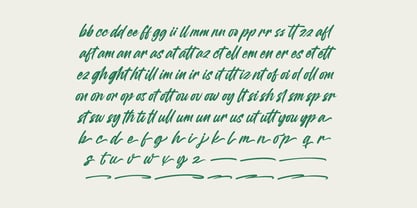 bb cc dd ee ff gg ii ll mm nn oo pp rr ss tt zz afl
aft am an ar as at att az ct ell em en er es et ett
ez gh ght ht ill im in ir is it itt iz nt of oi ol oll om
on on or op os ot ott ov ow oy lt si sh sl sm sp sr
st sw sy th ti tl ull um un ur us ut utt you yp a
b c d e f g h i j k l m n o p q r
s t u v w x y z